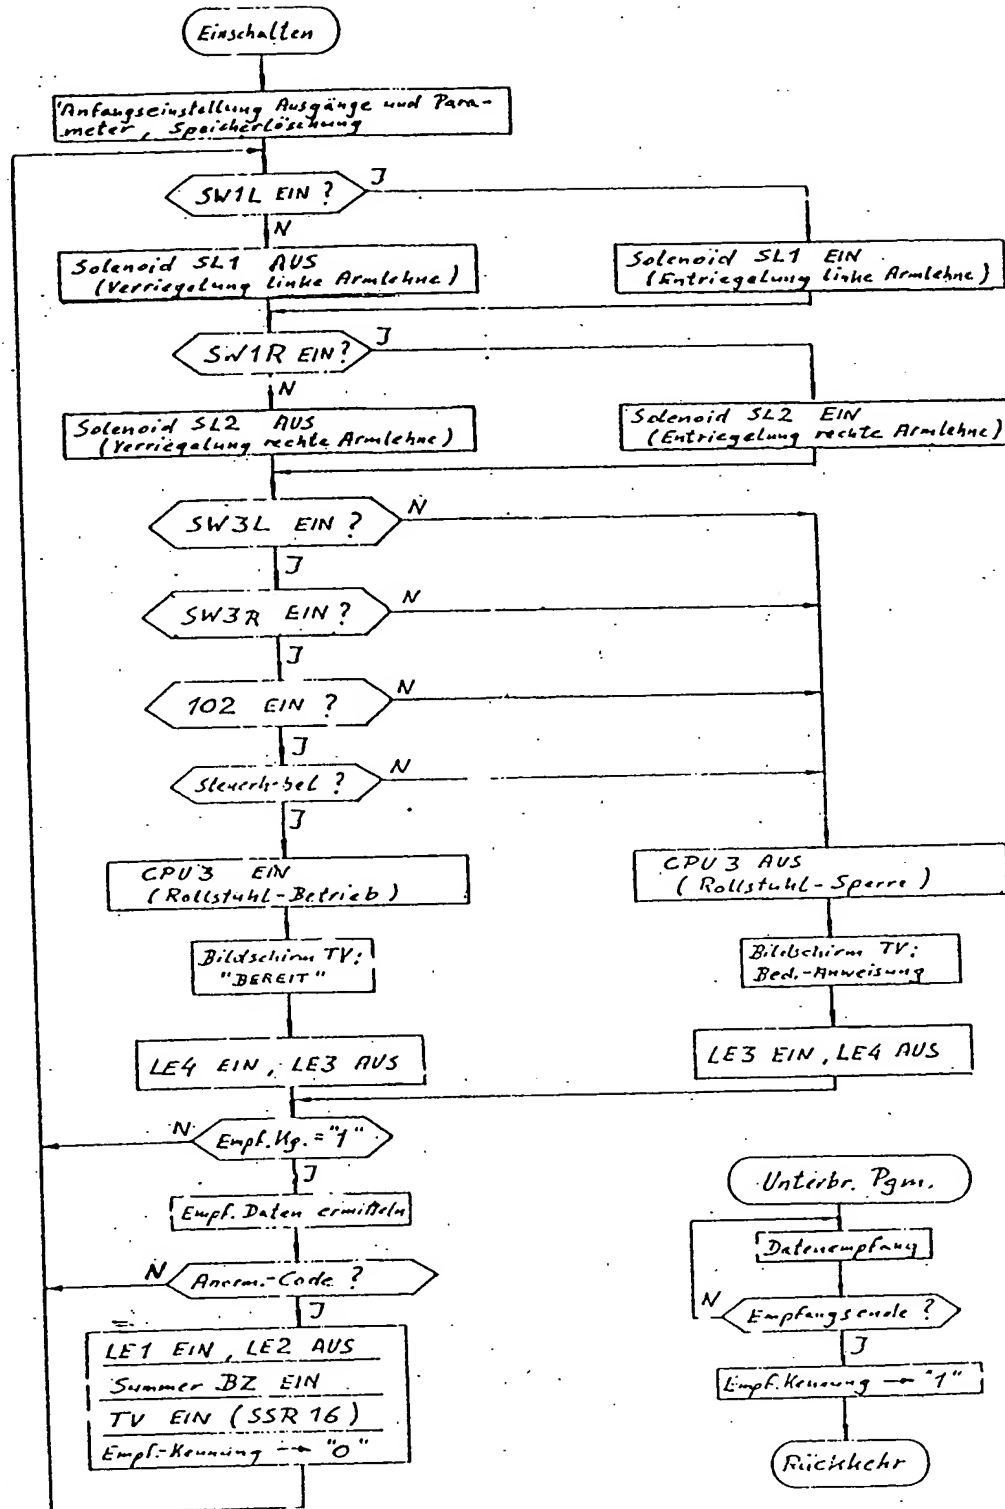 Einschalten
Anfangseinstellung Ausgänge und Para-
meter, Speicherlöschung
SW1L EIN ?
J
N
Solenoid SL1 AUS
(Verriegelung linke Armlehne)
Solenoid SL1 EIN
(Entriegelung linke Armlehne)
SW1R EIN?
J
N
Solenoid SL2 AUS
(Verriegelung rechte Armlehne)
Solenoid SL2 EIN
(Entriegelung rechte Armlehne)
SW3L EIN ?
N
J
SW3R EIN?
N
J
102 EIN ?
N
J
Steuerhebel ?
N
J
CPU3 EIN
(Rollstuhl-Betrieb)
CPU3 AUS
(Rollstuhl-Sperre)
Bildschirm TV:
"BEREIT"
Bildschirm TV:
Bed.-Anweisung
LE4 EIN, LE3 AUS
LE3 EIN, LE4 AUS
N
Empf.Kg.="1"
J
Empf. Daten ermitteln
N
Anrem.-Code ?
J
LE1 EIN, LE2 AUS
Summer BZ EIN
TV EIN (SSR 16)
Empf.-Kennung → "0"
Unterbr. Pgm.
Datenempfang
N
Empfangsende ?
J
Empf. Kennung → "1"
Rückkehr